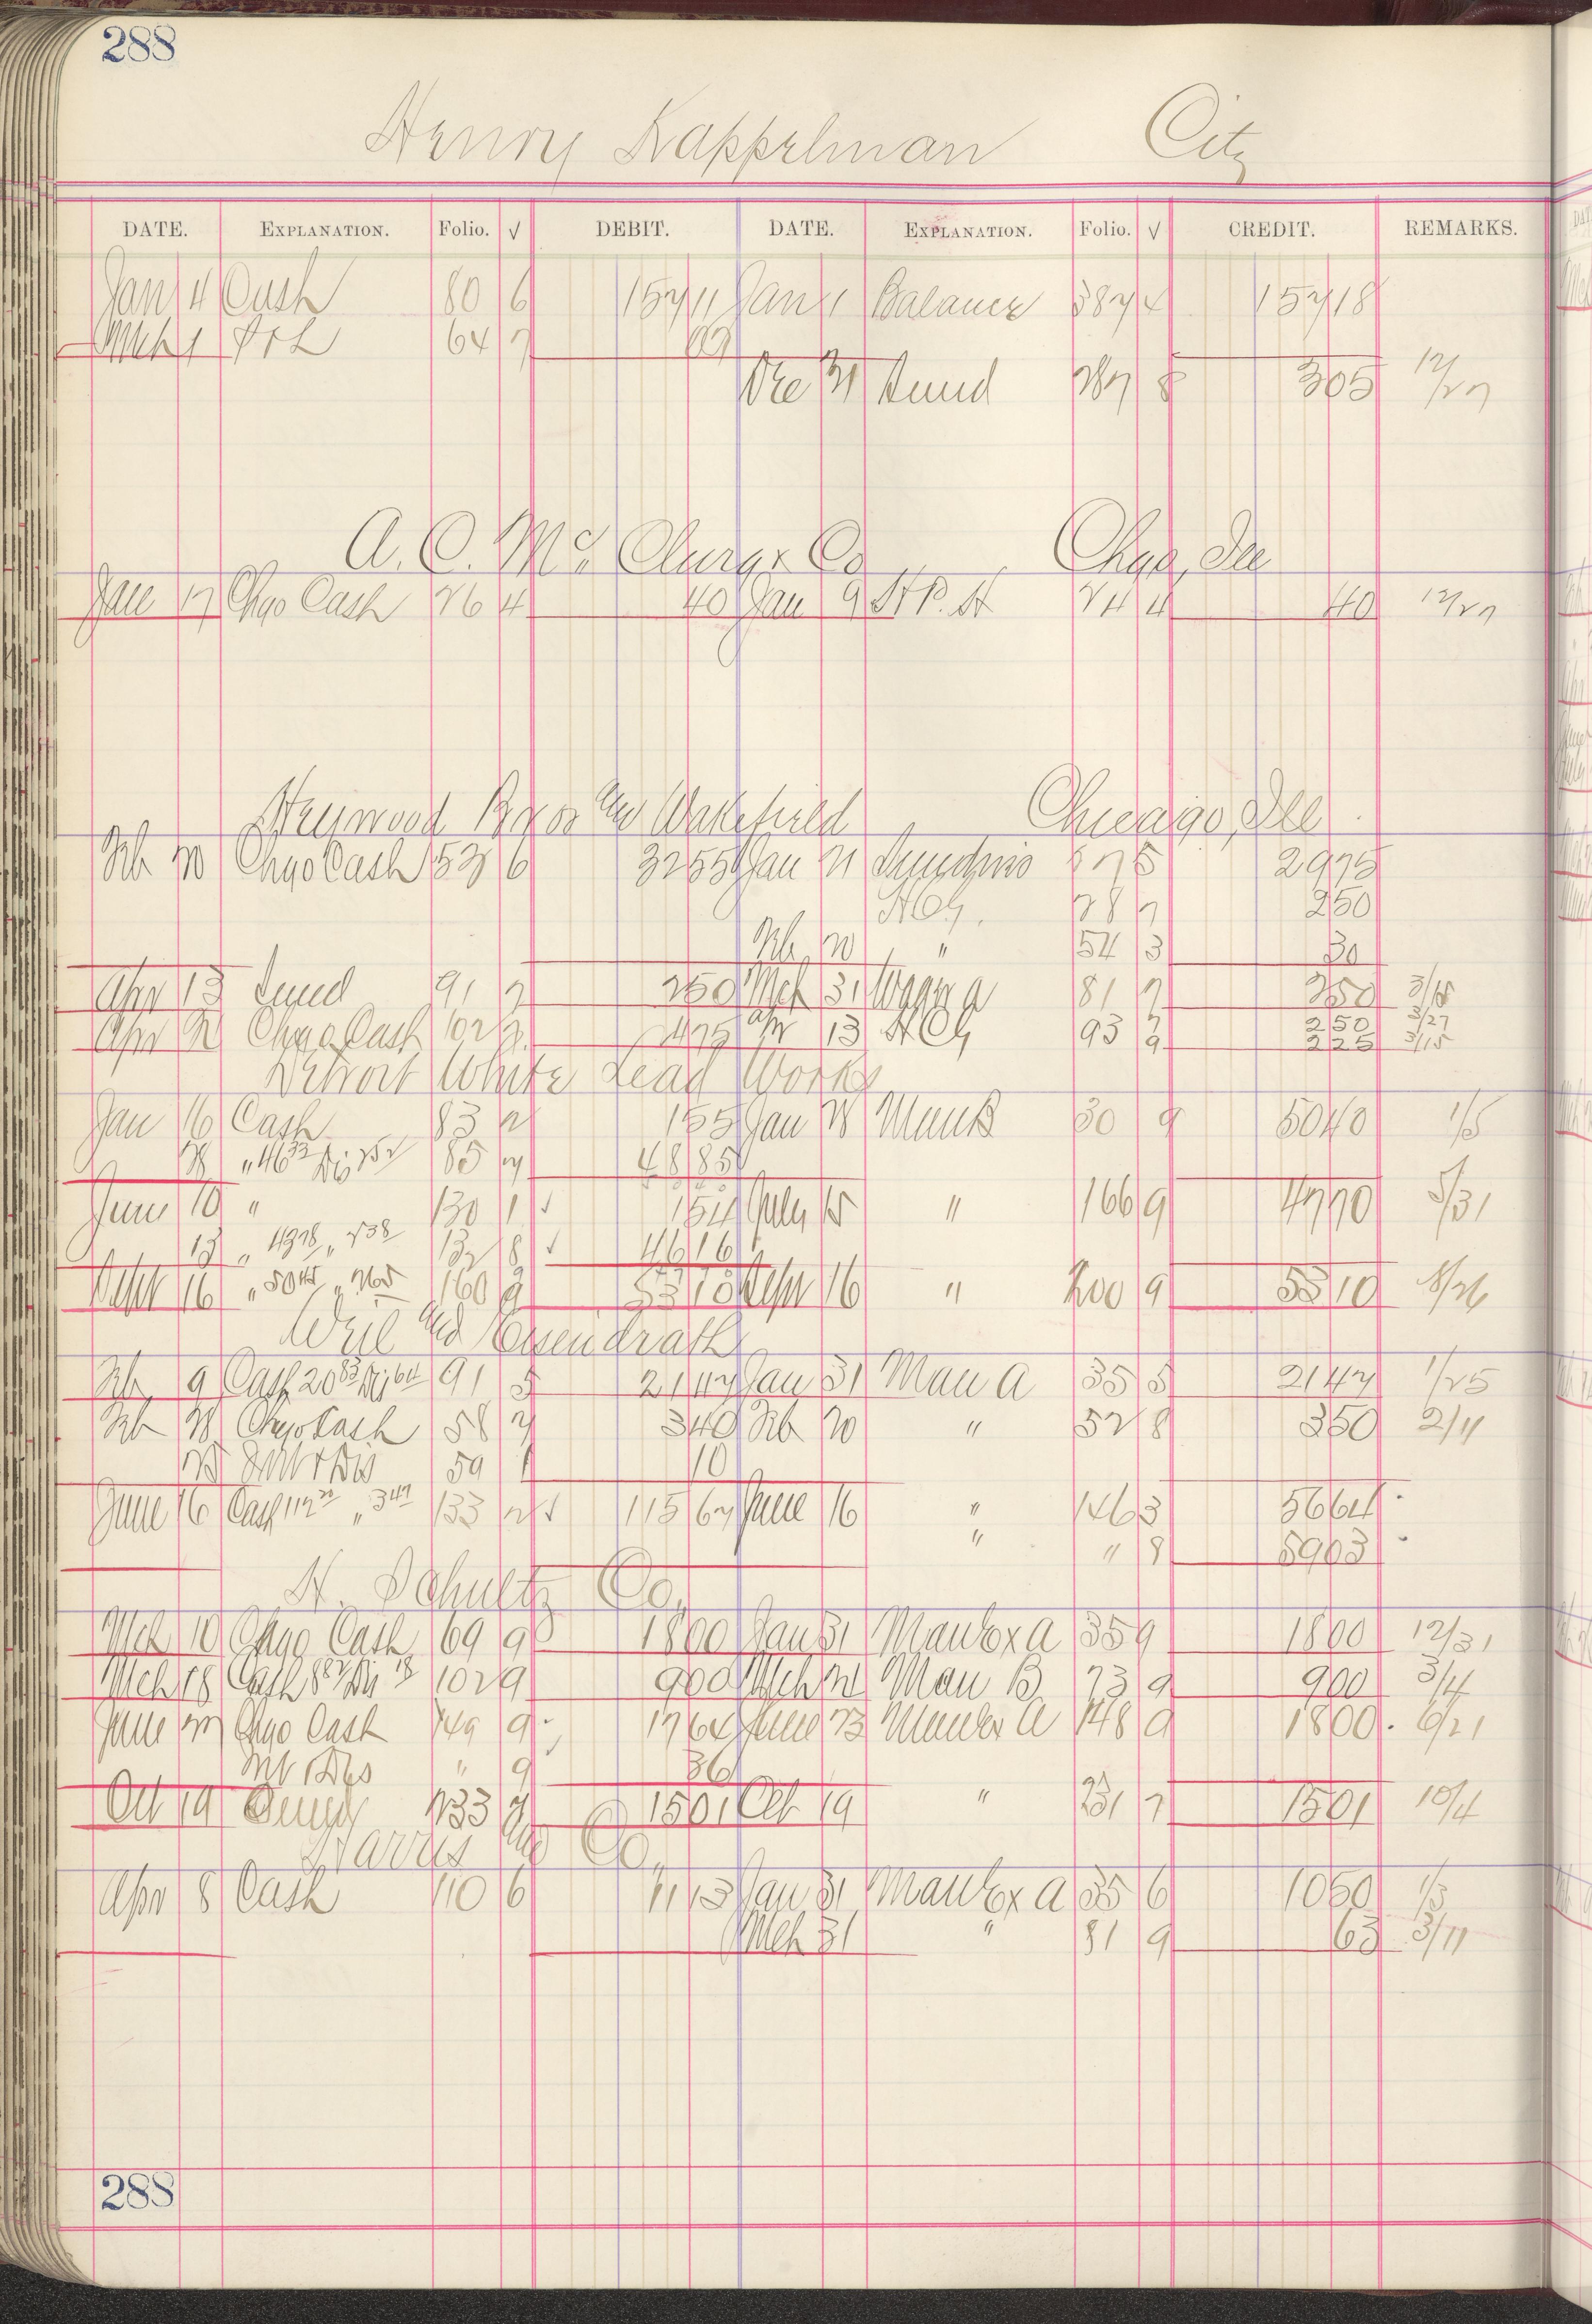 288
Henry Kappelman City
DATE. EXPLANATION. Folio. √ DEBIT. DATE. EXPLANATION. Folio. √ CREDIT. REMARKS.
Jan 4 Cash 80 6 157 11 Jan 1 Balance 387 4 157 18
Mch 1 P & L 64 7 07
Dec 31 Sund 287 8 3 05 12/27
A. C. McClurg & Co Chgo, Ill
Jan 17 Chgo Cash 26 4 40 Jan 9 H P. H 24 4 40 12/27
Heywood Bros and Wakefield Chicago, Ill
Feb 20 Chgo Cash 53 6 32 55 Jan 21 275 29 75
H C G. 28 7 2 50
Feb 20 " 54 3 30
Apr 13 Sund 91 7 2 50 Mch 31 81 7 2 50 3/18
Apr Chgo Cash 102 4 75 Apr 13 H C G 93 7 2 50 3/27
9 2 25 3/15
Detroit White Lead Works
Jan 16 Cash 83 2 1 55 Jan 28 Man B 30 9 50 40 1/5
" 46 33 Dis 2 52 85 48 85
June 10 " 130 1 √ 1 54 July 15 " 166 9 47 70 5/31
13 " 43 78 " 2 38 132 8 √ 46 16
Sept 16 " 50 45 " 2 65 160 9 53 10 Sept 16 " 200 9 53 10 8/26
Weil and Eisendrath
Feb 9 Cash 20 83 Dis 64 91 5 21 47 Jan 31 Man A 35 5 21 47 1/25
Feb Chgo Cash 58 3 40 Feb 20 " 52 8 3 50 2/11
59 1 10
June 16 Cash 112 20 " 3 47 133 2 √ 115 67 June 16 " 146 3 56 64
" " 8 59 03
H. Schultz Co.
Mch 10 Chgo Cash 69 9 18 00 Jan 31 Manfr A 35 9 18 00 12/31
Mch 18 Cash 8 82 Dis 18 102 9 9 00 Mch 21 Man B 73 9 9 00 3/4
June 27 Chgo Cash 149 9 17 64 June 23 Manfr A 148 9 18 00 6/21
" 9 36
Oct 19 233 7 15 01 Oct 19 " 231 7 15 01 10/4
Harris and Co.
Apr 8 Cash 110 6 11 13 Jan 31 Manfr A 35 6 10 50 1/3
Mch 31 " 81 9 63 3/11
288